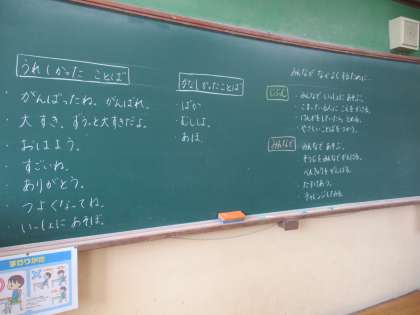 うれしかった ことば
・がんばったね。がんばれ。
・大すき。ずうっと大すきだよ。
・おはよう。
・すごいね。
・ありがとう。
・つよくなってね。
・いっしょに あそぼ。
かなしかったことば
・ばか
・むしば。
・あほ。
みんなが なかよく するために…
じぶん
・みんなと いっしょに あそぶ。
・こまっている人に こえをかける。
・けんかをしていたら とめる。
・やさしいことばを つかう。
みんなで
・みんなで あそぶ。
・そうじをみんなで がんばる。
・べんきょうを がんばる。
・たすけあう。
・チャレンジしてみる。